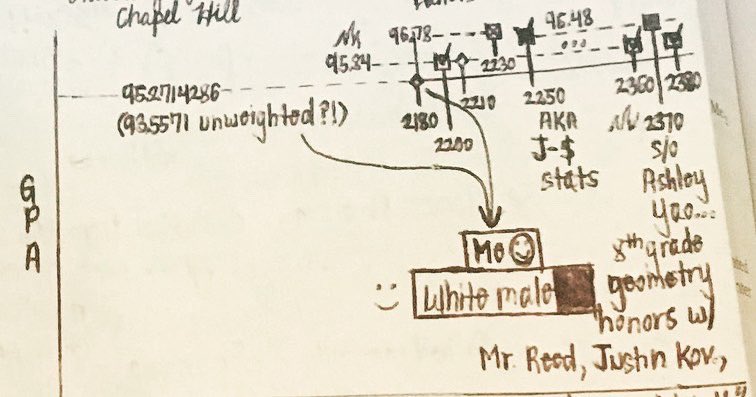 Chapel Hill
96.78
96.48
95.84
2230
95.2714286
(93.5571 unweighted?!)
2210
2360
2380
2180
2250
2370
2200
AKA
J-$
stats
s/o
Ashley
Yao...
GPA
Me
White male
8th grade
geometry
honors w/
Mr. Reed, Justin Kov.,